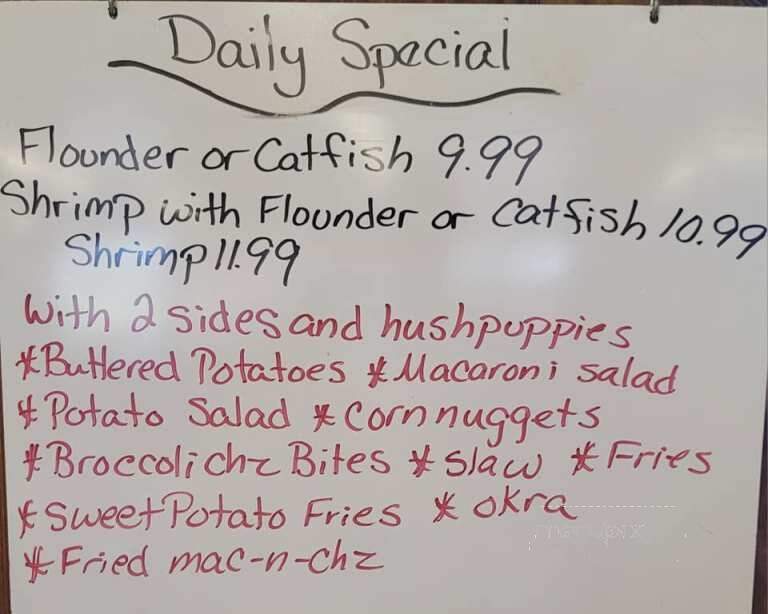 Daily Special
Flounder or Catfish 9.99
Shrimp with Flounder or Catfish 10.99
Shrimp 11.99
With 2 sides and hushpuppies
*Buttered Potatoes *Macaroni salad
*Potato Salad *Corn nuggets
*Broccoli chz Bites *Slaw *Fries
*Sweet Potato Fries *okra
*Fried mac-n-chz